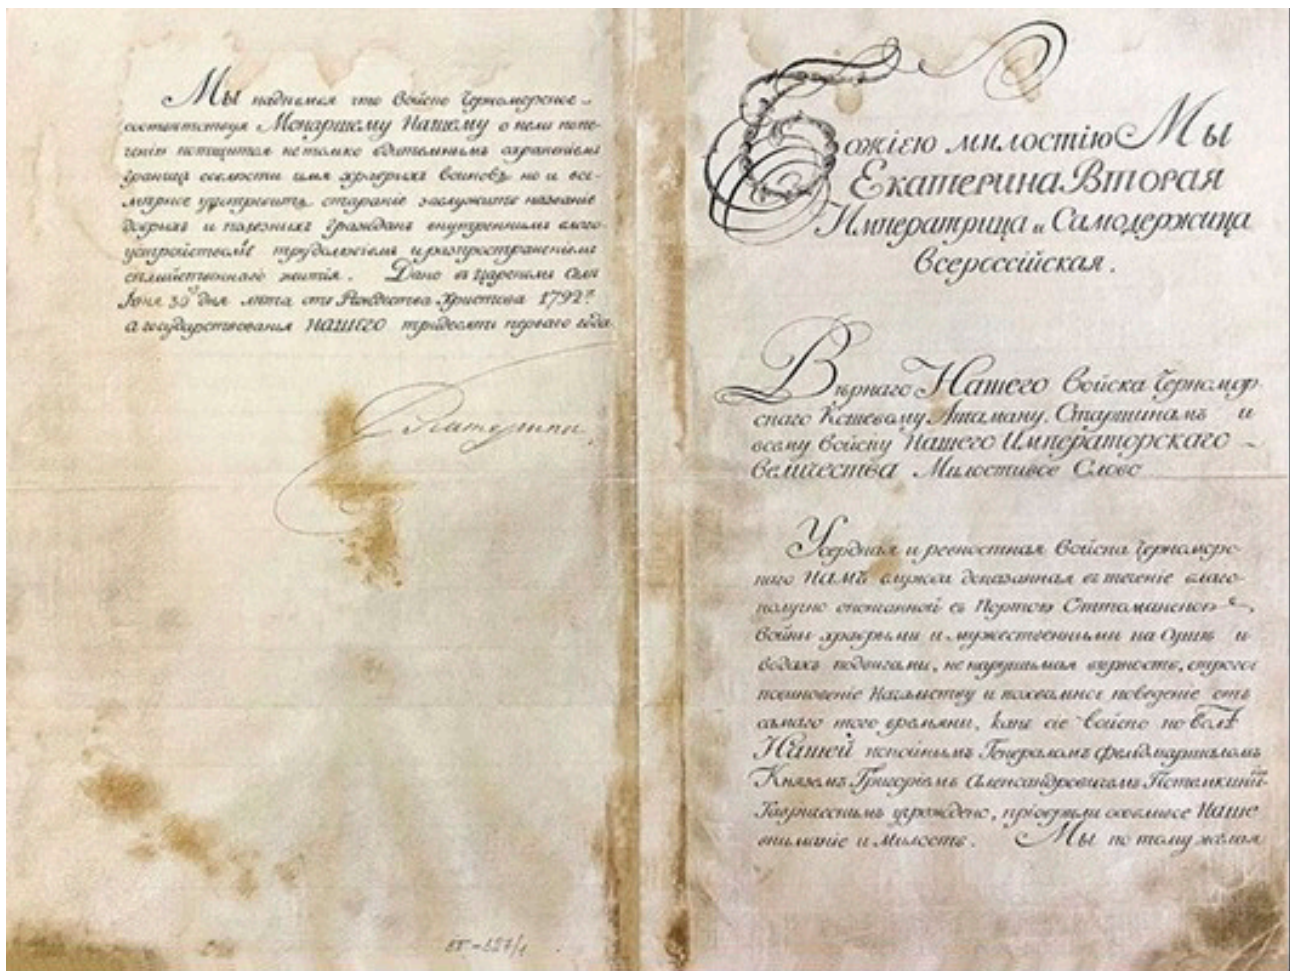 Мы надѣемся что Войско Черноморское
соответствуя Монаршему Нашему о немъ попе-
ченію потщится не только бдительнымъ охраненіемъ
границъ соблюсти имя храбрыхъ воиновъ но и все-
мѣрное употребить стараніе заслужить названіе
добрыхъ и полезныхъ гражданъ внутреннимъ благо-
устройствомъ трудолюбіемъ и распространеніемъ
семейственнаго житія. Дано въ Царскомъ Селѣ
Іюня 30 дня лѣта отъ Рождества Христова 1792го
а государствованія НАШЕГО тридесять перваго года
Екатерина.
Божіею милостію Мы
Екатерина Вторая
Императрица и Самодержица
Всероссійская.
Вѣрнаго Нашего Войска Черномор-
скаго Кошевому Атаману, Старшинамъ и
всему Войску Нашего Императорскаго
Величества Милостивое Слово
Усердная и ревностная Войска Черноморс-
каго НАМЪ служба доказанная въ теченіе благо-
получно оконченной съ Портою Оттоманскою
войны храбрыми и мужественными на Сушѣ и
водахъ подвигами, не нарушимая вѣрность, строгое
повиновеніе Начальству и похвальное поведеніе отъ
самаго того времяни, какъ сіе войско по волѣ
Нашей покойнымъ Генераломъ фельдмаршаломъ
Княземъ Григоріемъ Александровичемъ Потемкинымъ
Таврическимъ учреждено, пріобрѣли особливое Наше
вниманіе и Милость. Мы по тому желая